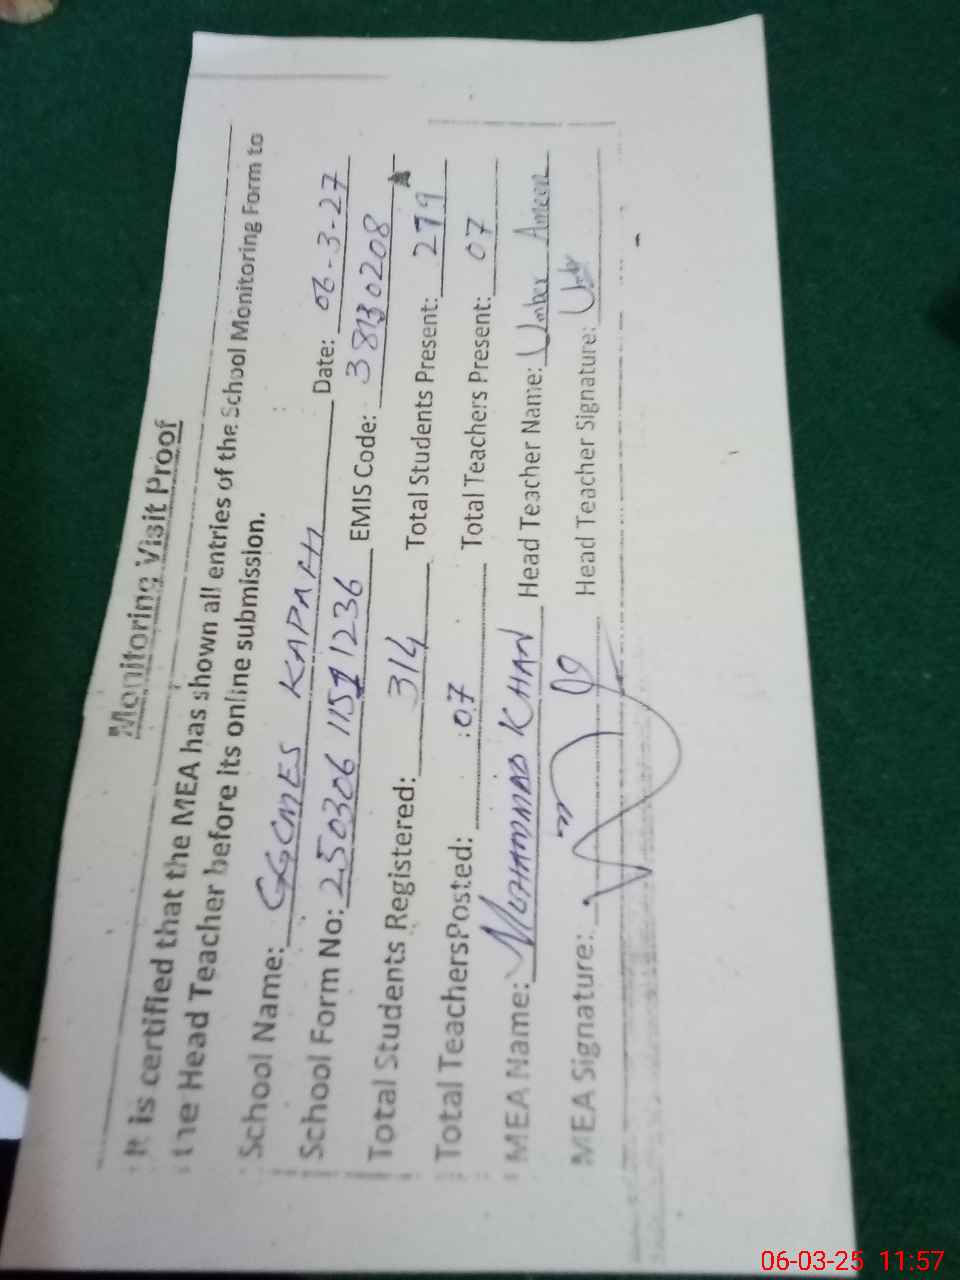 Monitoring Visit Proof
It is certified that the MEA has shown all entries of the School Monitoring Form to
the Head Teacher before its online submission.
School Name: GGCMES KAPAH Date: 06-3-27
School Form No: 250306 1151236 EMIS Code: 38130208
Total Students Registered: 314 Total Students Present: 279
Total TeachersPosted: 07 Total Teachers Present: 07
MEA Name: MUHAMMAD KHAN Head Teacher Name: Umber Ameen
MEA Signature: Head Teacher Signature:
06-03-25 11:57